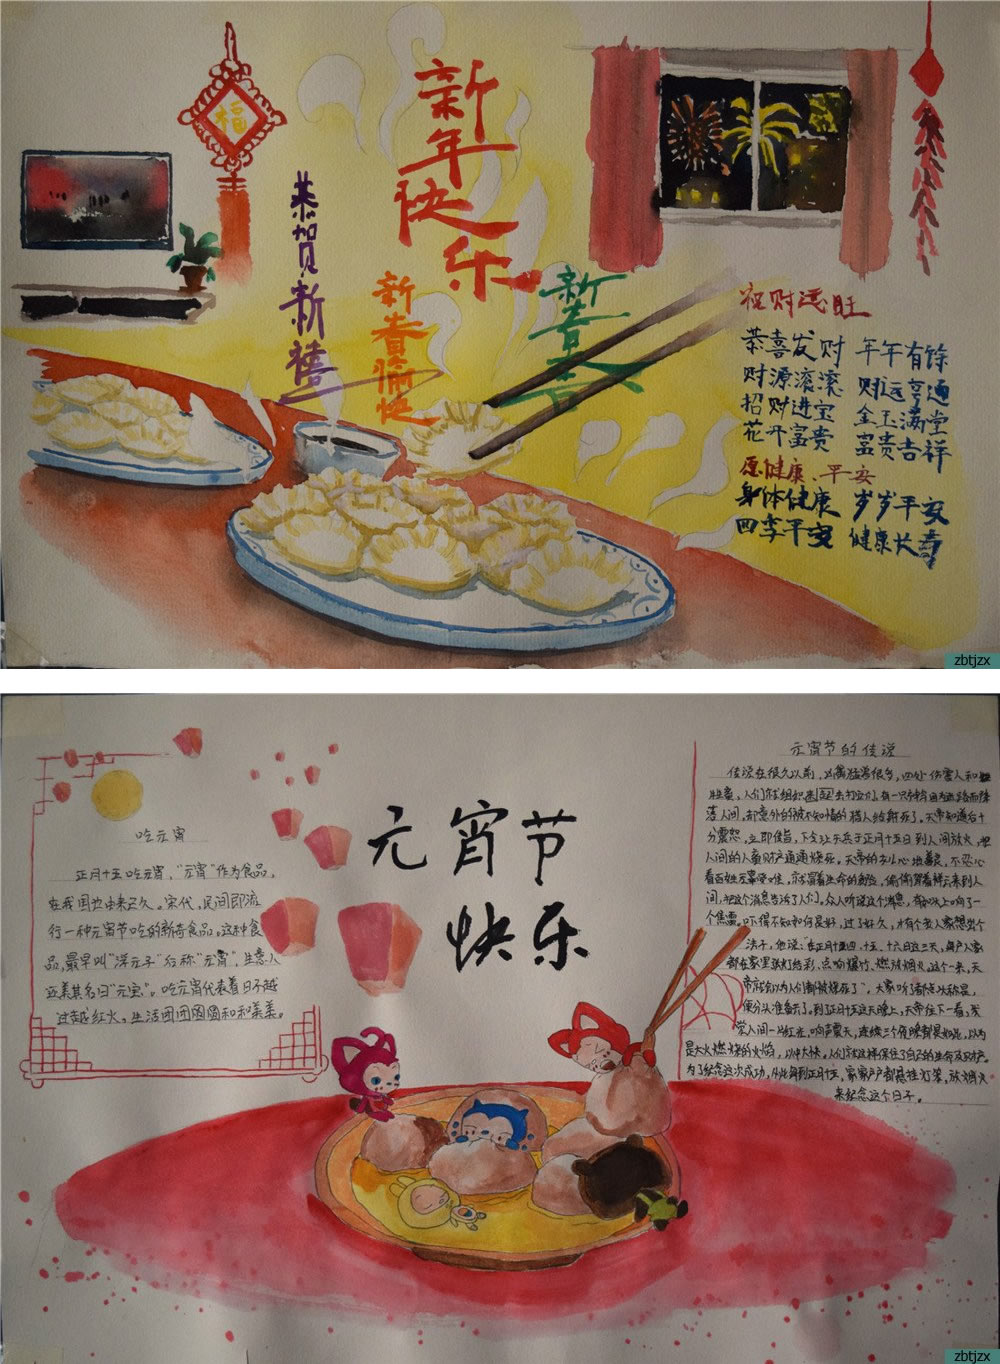 福
新年快乐
恭贺新禧
新春愉快
新春
祝财运旺
恭喜发财 年年有馀
财源滚滚 财运亨通
招财进宝 金玉满堂
花开富贵 富贵吉祥
愿健康、平安
身体健康 岁岁平安
四季平安 健康长寿
zbtjzx
元宵节
快乐
吃元宵
正月十五吃元宵,“元宵”作为食品,
在我国也由来已久。宋代,民间即流
行一种元宵节吃的新奇食品。这种食
品,最早叫“浮元子”后称“元宵”,生意人
还美其名曰“元宝”。吃元宵代表着日子越
过越红火。生活团团圆圆和和美美。
元宵节的传说
传说在很久以前,凶禽猛兽很多,四处伤害人和
牲畜,人们就组织起来去打它们,有一只神鸟因为迷路而降
落人间,却意外的被不知情的猎人给射死了。天帝知道后十
分震怒,立即传旨,下令让天兵于正月十五日到人间放火,把
人间的人畜财产通通烧死。天帝的女儿心地善良,不忍心
看百姓无辜受难,就冒着生命的危险,偷偷驾着祥云来到人
间,把这个消息告诉了人们。众人听说这个消息,有如头上响了一
个焦雷。吓得不知如何是好,过了好久,才有个老人家想出个
法子,他说:“在正月十四、十五、十六日这三天,每户人家
都在家里张灯结彩、点响爆竹、燃放烟火。这个一来,天
帝就会以为人们都被烧死了”。大家听了都点头称是,
便分头准备去了。到正月十五这天晚上,天帝往下一看,发
觉人间一片红光,响声震天,连续三个夜晚都是如此,以为
是大火燃烧的火焰,以中大快。人们就这样保住了自己的生命及财产。
为了纪念这次成功,从此每到正月十五,家家户户都悬挂灯笼,放烟火
来纪念这个日子。
zbtjzx